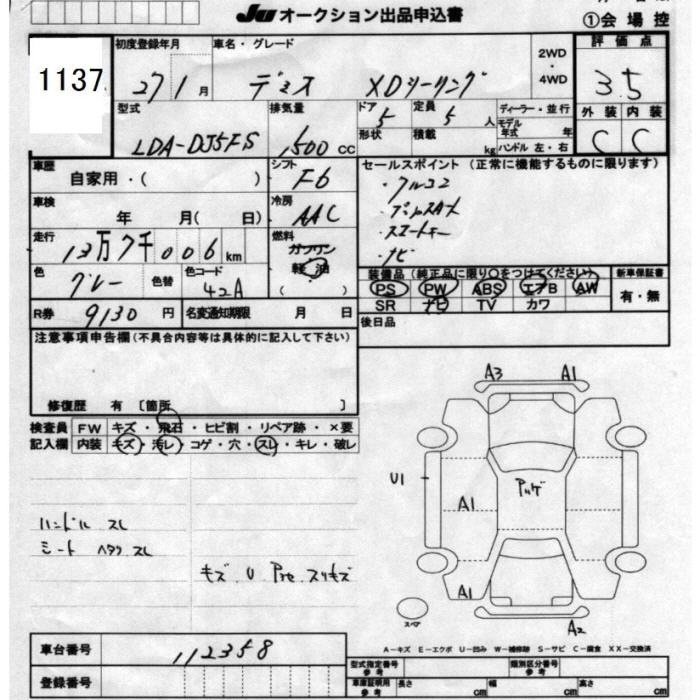 JU オークション出品申込書
①会場控
1137
初度登録年月
27 1月
車名・グレード
デミオ XDツーリング
2WD・4WD
評価点
3.5
外装 内装
C C
型式
LDA-DJ5FS
排気量
1500 cc
ドア 5
定員 5人
ディーラー・並行
モデル年式 年
形状
積載 kg
ハンドル 左・右
車歴
自家用・( )
シフト
F6
セールスポイント(正常に機能するものに限ります)
・アルコン
・プッシュスタート
・スマートキー
・ナビ
車検
年 月( 日)
冷房
AAC
走行
13万7千006km
燃料
ガソリン
軽油
( )
色
グレー
色替
色コード
42A
装備品(純正品に限り○をつけてください)
PS PW ABS エアB AW
SR ナビ TV カワ
新車保証書
有・無
R券
9130円
名変通知期限 月 日
後日品
注意事項申告欄(不具合内容等は具体的に記入して下さい)
修復歴 有 〔箇所 〕
検査員記入欄
FW キズ・飛石・ヒビ割・リペア跡・×要
内装 キズ・汚レ・コゲ・穴・スレ・キレ・破レ
ハンドル スレ
シート ヘタリ スレ
キズ U
A3 A1
U1
A1
A1
A2
スペア
A-キズ E-エクボ U-凹み W-補修跡 S-サビ C-腐食 XX-交換済
車台番号
112358
登録番号
型式指定番号 参考
類別区分番号 参考
車庫証明用 参考
長さ cm
幅 cm
高さ cm